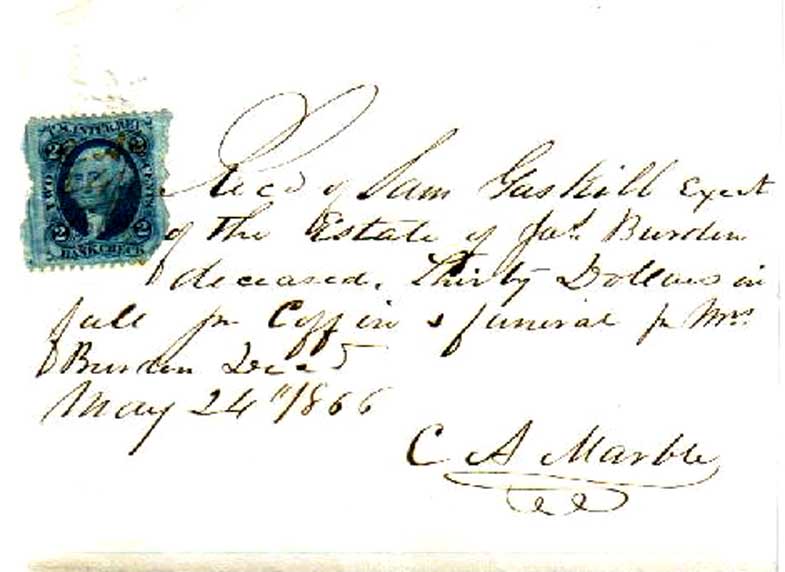 U.S. INTER. REV.
2 2
TWO CENTS
2 2
BANK CHECK
Recd of Sam Gaskill Exect
of the Estate of Jas. Burden
deceased. Thirty Dollars in
full for Coffin & funeral for Mrs
Burden Decd
May 24" 1866
C A Marble